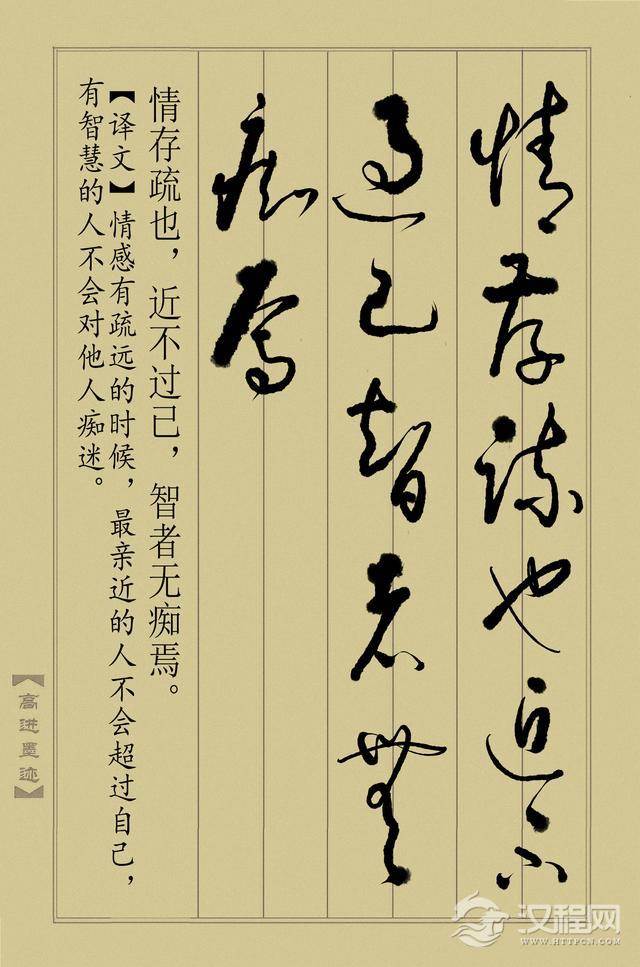 情存疏也近不
過己智者無
痴焉
情存疏也，近不过己，智者无痴焉。
【译文】情感有疏远的时候，最亲近的人不会超过自己，
有智慧的人不会对他人痴迷。
【高进墨迹】
汉程网
WWW.HTTPCN.COM